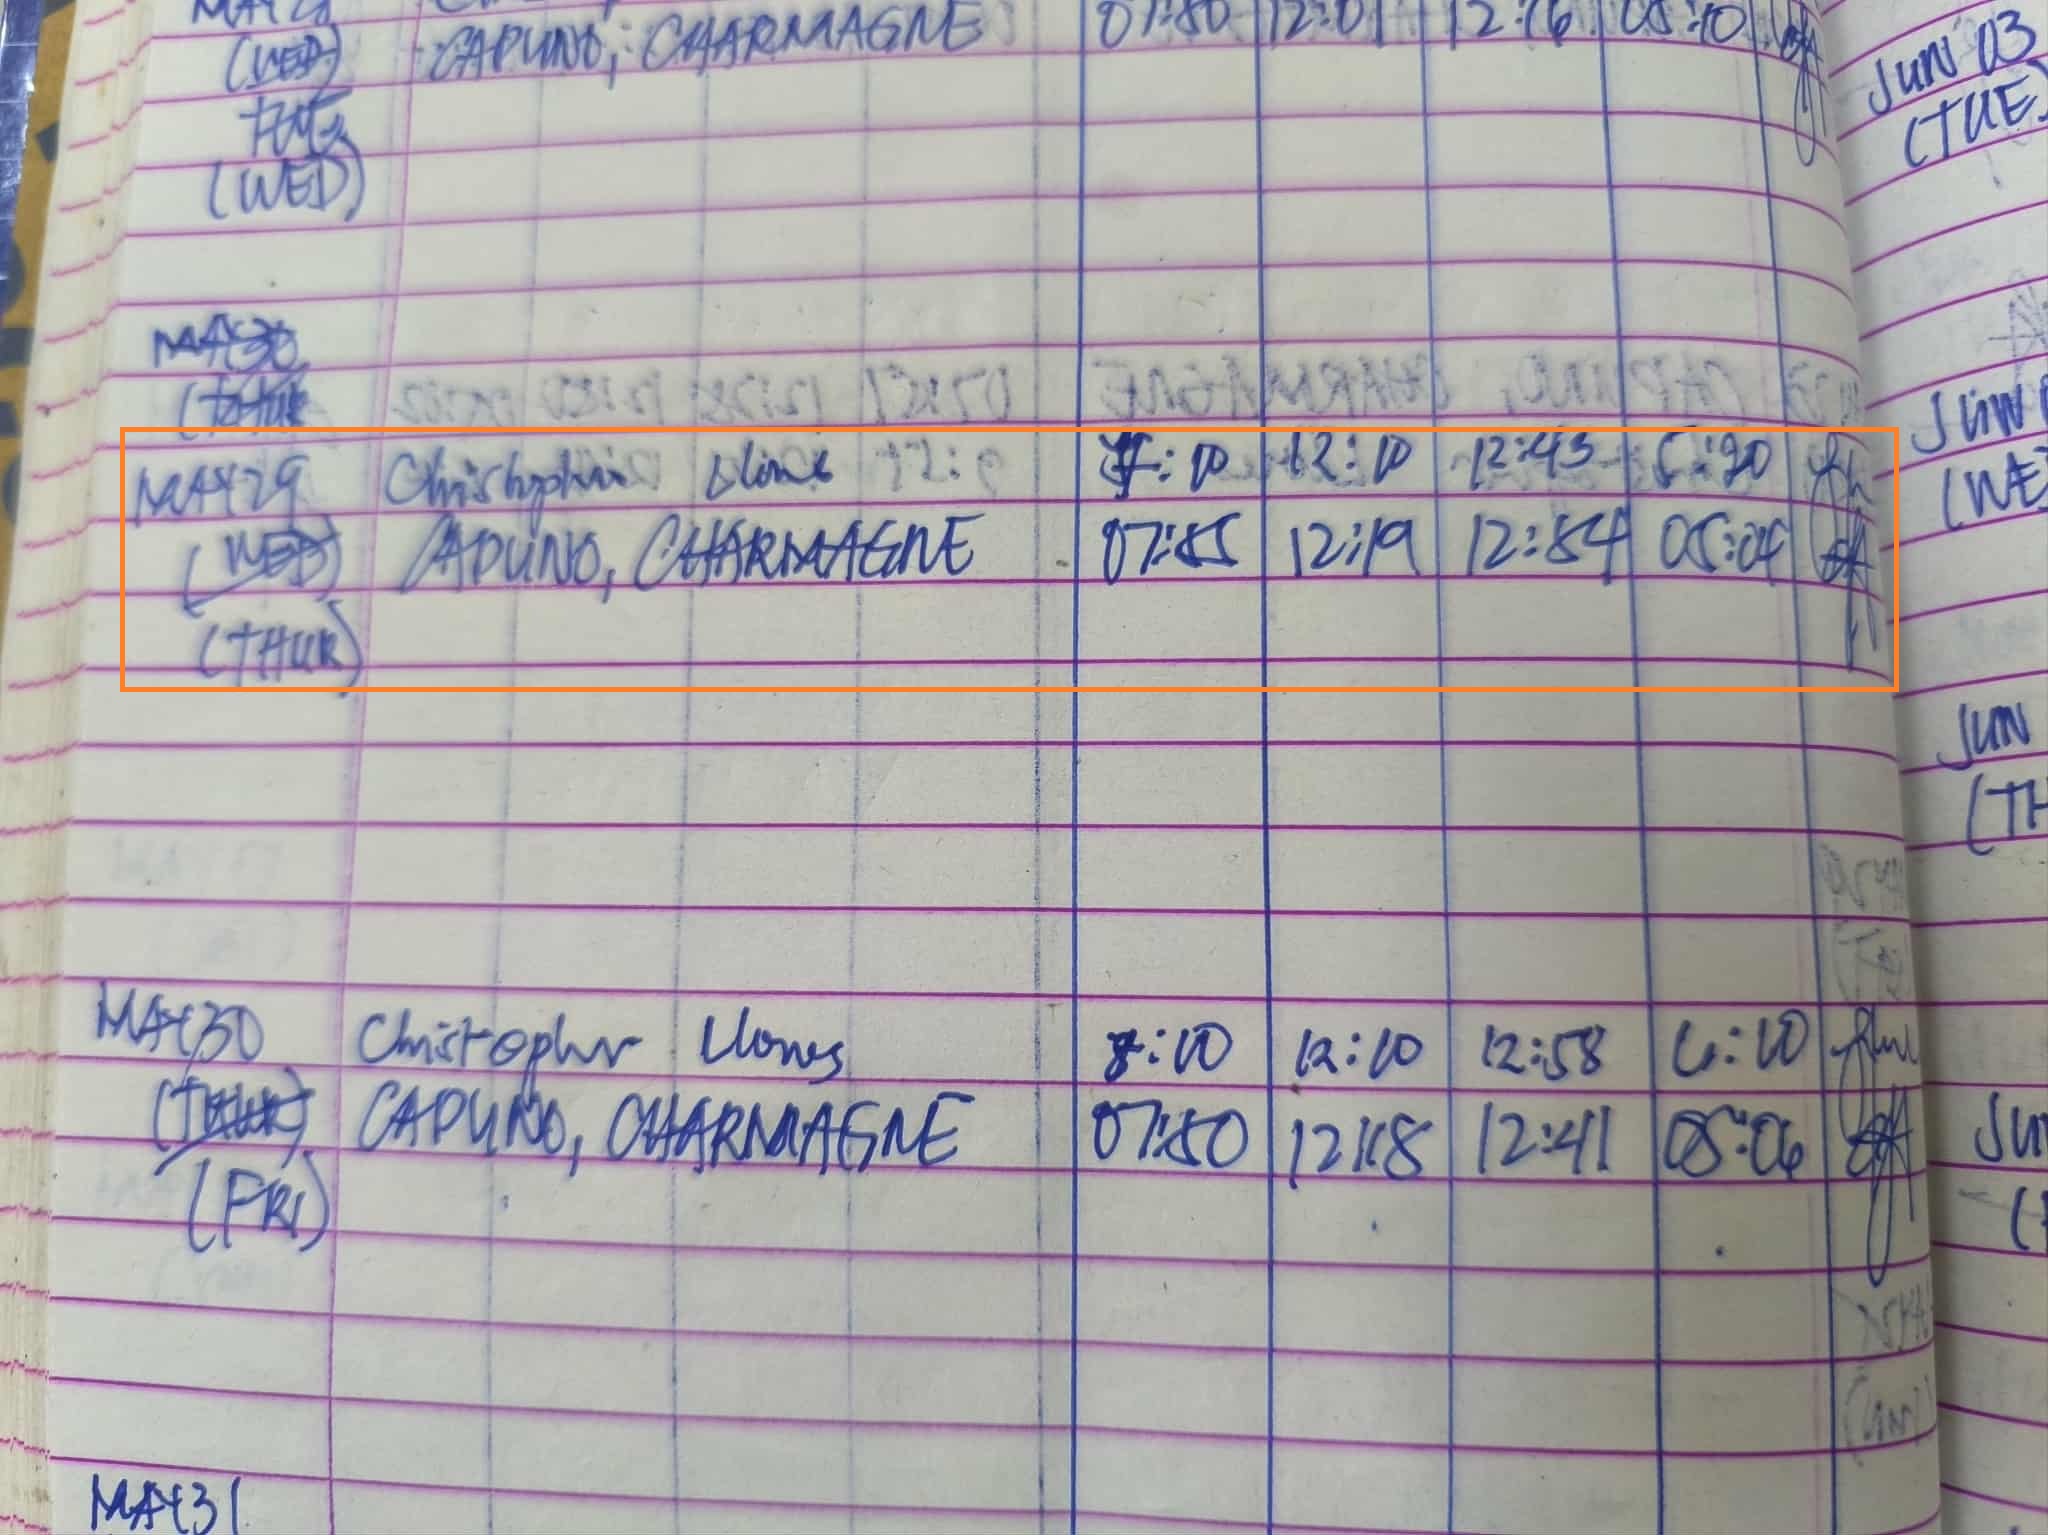 (WED) CAPUNO, CHARMAGNE 07:50 12:01 12:16 05:10
(WED)
MAY 29 Christopher Llones 7:10 12:10 12:43 5:20
(WED) CAPUNO, CHARMAGNE 07:55 12:19 12:54 05:04
(THUR)
MAY 30 Christopher Llones 8:10 12:10 12:58 6:10
(THUR) CAPUNO, CHARMAGNE 07:50 12:18 12:41 05:06
(FRI)
MAY 31
JUN 03
(TUE)
JUN
(WE
JUN
(TH